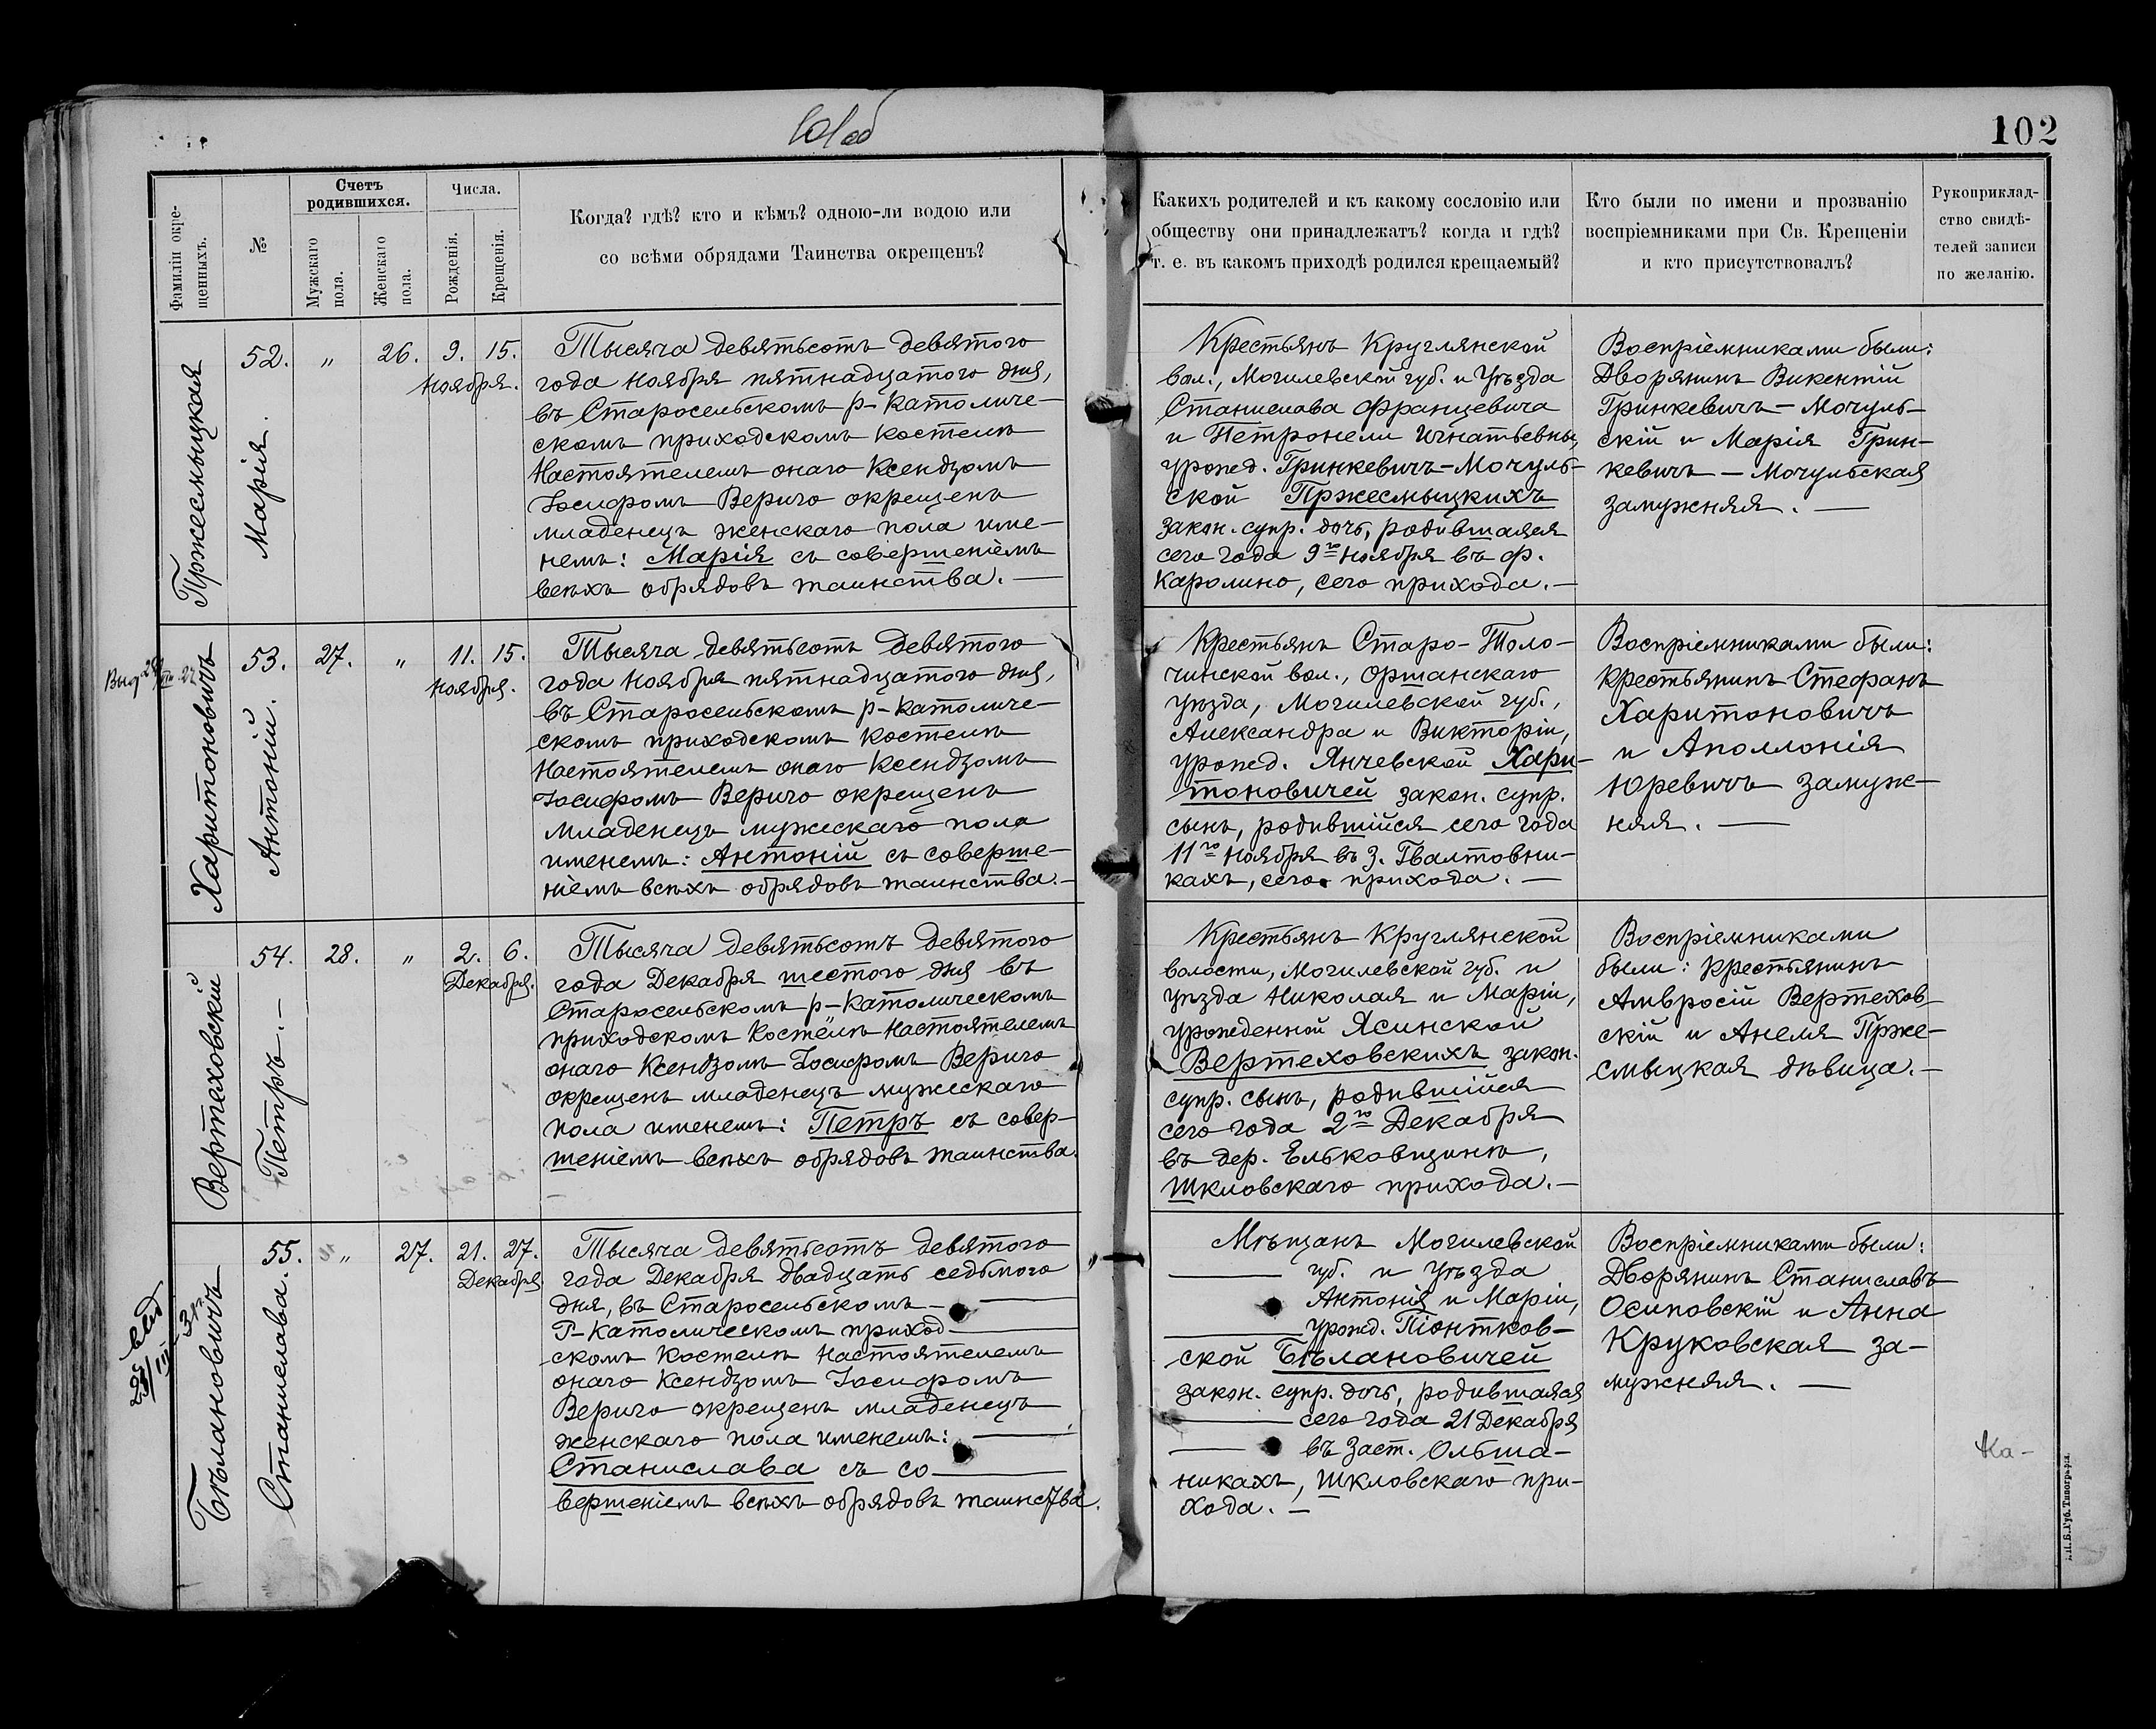 101 об
102
Фамиліи окре-
щенныхъ.
№
Счетъ
родившихся.
Мужскаго
пола.
Женскаго
пола.
Числа.
Рожденія.
Крещенія.
Когда? гдѣ? кто и кѣмъ? одною-ли водою или
со всѣми обрядами Таинства окрещенъ?
Какихъ родителей и къ какому сословію или
обществу они принадлежатъ? когда и гдѣ?
т. е. въ какомъ приходѣ родился крещаемый?
Кто были по имени и прозванію
воспріемниками при Св. Крещеніи
и кто присутствовалъ?
Рукоприклад-
ство свидѣ-
телей записи
по желанію.
Пржесмыцкая
Марія.
52. „ 26. 9. 15.
Ноября.
Тысяча девятьсотъ девятого
года Ноября пятнадцатого дня,
въ Старосельскомъ р-католиче-
скомъ приходскомъ костелѣ
Настоятелемъ онаго Ксендзомъ
Іосифомъ Веричо окрещенъ
младенецъ женскаго пола име-
немъ: Марія съ совершеніемъ
всѣхъ обрядовъ таинства. —
Крестьянъ Круглянской
вол., Могилевской губ. и Уѣзда
Станислава Францевича
и Петронели Игнатьевны,
урожд. Гринкевичъ-Мочуль-
ской Пржесмыцкихъ
закон. супр. дочь, родившаяся
сего года 9го Ноября въ ф.
Каролино, сего прихода. —
Воспріемниками были:
Дворянинъ Викентій
Гринкевичъ-Мочуль-
скій и Марія Грин-
кевичъ-Мочульская
замужняя. —
Харитоновичъ
Антоній.
53. 27. „ 11. 15.
Ноября.
Тысяча девятьсотъ Девятого
года Ноября пятнадцатого дня,
въ Старосельскомъ р-католиче-
скомъ приходскомъ костелѣ
Настоятелемъ онаго Ксендзомъ
Іосифомъ Веричо окрещенъ
младенецъ мужескаго пола
именемъ: Антоній съ соверше-
ніемъ всѣхъ обрядовъ таинства. —
Крестьянъ Старо-Толо-
чинской вол., Оршанскаго
уѣзда, Могилевской губ.,
Александра и Викторіи,
урожд. Янчевской Хари-
тоновичей закон. супр.
сынъ, родившійся сего года
11го Ноября въ з. Гвалтовни-
кахъ, сего прихода. —
Воспріемниками были:
Крестьянинъ Стефанъ
Харитоновичъ
и Аполлонія
Юревичъ замуж-
няя. —
Вертеховскій
Петръ. —
54. 28. „ 2. 6.
Декабря.
Тысяча девятьсотъ девятого
года Декабря шестого дня въ
Старосельскомъ р-католическомъ
приходскомъ Костелѣ Настоятелемъ
онаго Ксендзомъ Іосифомъ Веричо
окрещенъ младенецъ мужескаго
пола именемъ: Петръ съ совер-
шеніемъ всѣхъ обрядовъ таинства.
Крестьянъ Круглянской
волости, Могилевской губ. и
уѣзда Николая и Маріи,
урожденной Ясинской
Вертеховскихъ закон.
супр. сынъ, родившійся
сего года 2го Декабря
въ дер. Ельковщинѣ,
Шкловскаго прихода. —
Воспріемниками
были: Крестьянинъ
Амвросій Вертехов-
скій и Анеля Прже-
смыцкая дѣвица. —
Бѣлановичъ
Станислава.
55. „ 27. 21. 27.
Декабря
Тысяча девятьсотъ девятого
года Декабря двадцать седьмого
дня, въ Старосельскомъ —
Р-католическомъ приход-
скомъ костелѣ Настоятелемъ
онаго Ксендзомъ Іосифомъ
Веричо окрещенъ младенецъ
женскаго пола именемъ: —
Станислава съ со-
вершеніемъ всѣхъ обрядовъ таинства.
Мѣщанъ Могилевской
губ. и Уѣзда
Антонія и Маріи,
урожд. Піонтков-
ской Бѣлановичей
закон. супр. дочь, родившаяся
сего года 21 Декабря
въ заст. Ольша-
никахъ, Шкловскаго при-
хода. —
Воспріемниками были:
Дворянинъ Станиславъ
Осиповскій и Анна
Круковская за-
мужняя. —
Ка-